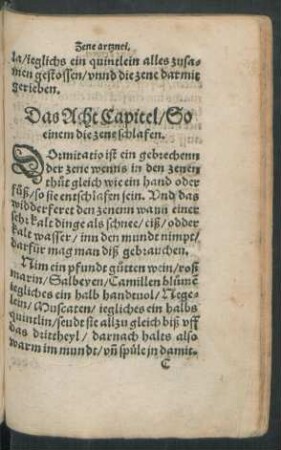 Zene artznei.
la/ieglichs ein quintlein alles zusa-
men gestossen/vnnd die zene darmit
gerieben.
Das Acht Capitel/So
einem die zene schlafen.
DOrmitatio ist ein gebrechenn
der zene wenns in den zenen
thüt gleich wie ein hand oder
füß/so sie entschlafen sein. Vnd das
widderferet den zenenn wann einer
sehr kalt dinge als schnee/eiß/odder
kalt wasser/inn den mundt nimpt/
darfür mag man diß gebrauchen.
Nim ein pfundt gütten wein/rosi
marin/Salbeyen/Camillen blüme
iegliches ein halb handtuol/Nege-
lein/Muscaten/iegliches ein halbs
quintlin/seudt sie allzu gleich biß vff
das drittheyl/darnach halts also
warm im mundt/vñ spüle jn damit.
C